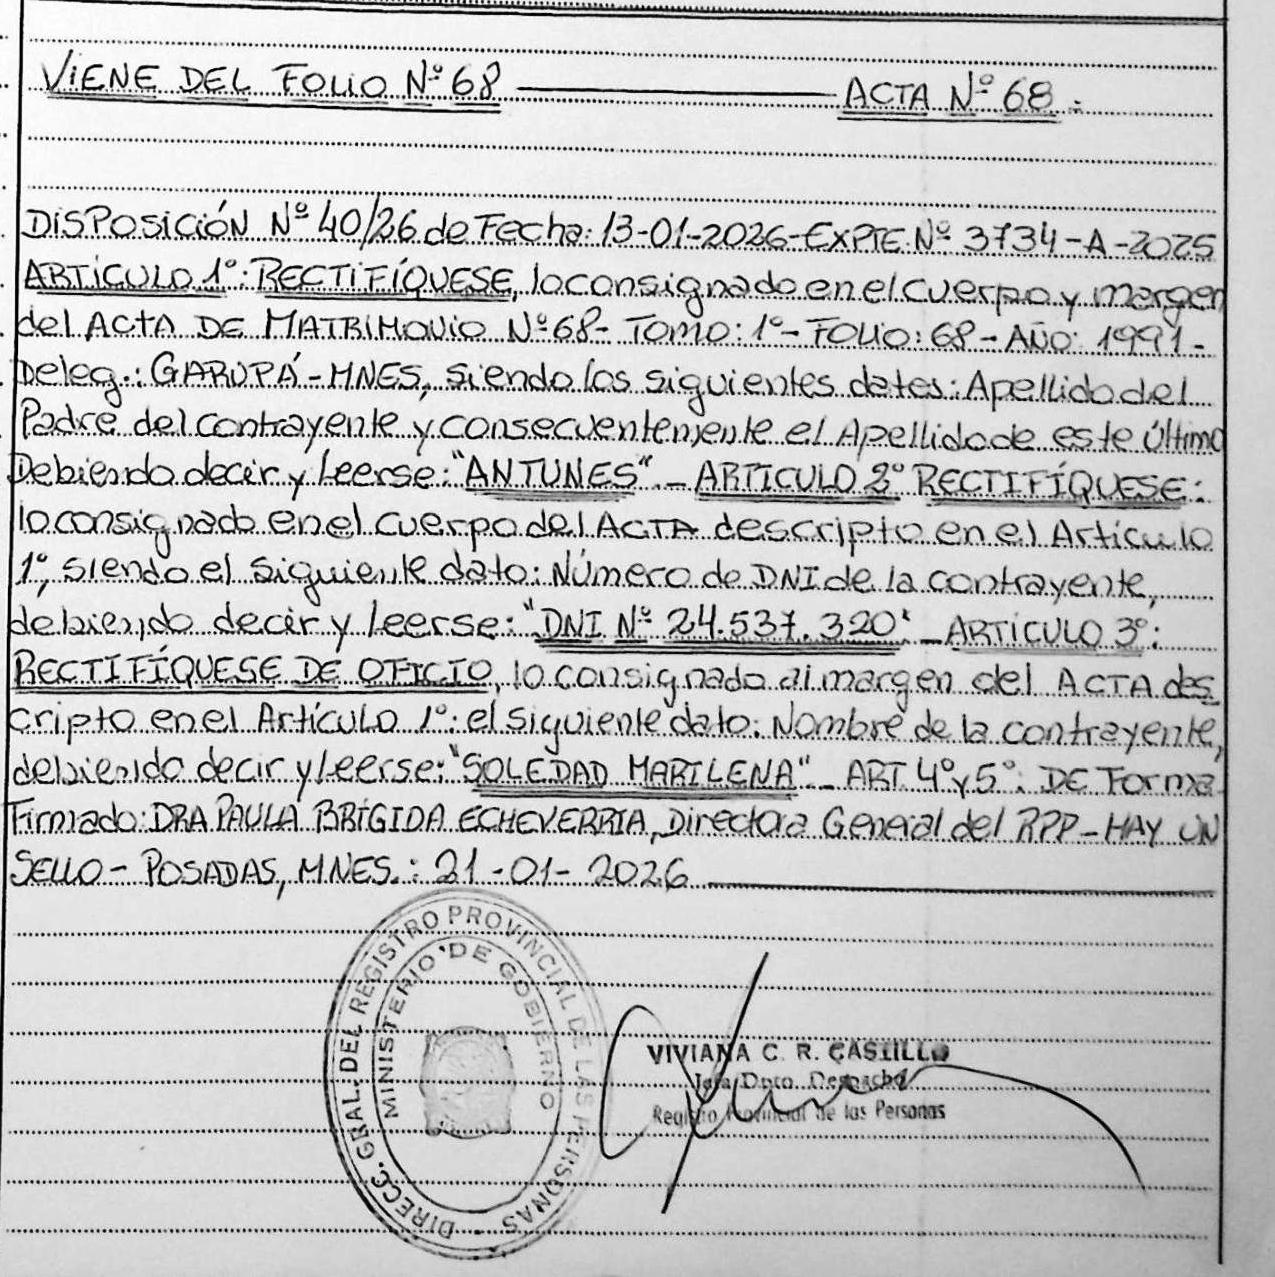 VIENE DEL FOLIO Nº 68 ——— ACTA Nº 68.:
DISPOSICIÓN Nº 40/26 de Fecha: 13-01-2026-EXPTE. Nº 3734-A-2025
ARTÍCULO 1º: RECTIFÍQUESE, lo consignado en el cuerpo y margen
del ACTA DE MATRIMONIO Nº 68- TOMO: 1º- FOLIO: 68- AÑO: 1991-
Deleg.: GARUPÁ-MNES, siendo los siguientes datos: Apellido del
Padre del contrayente y consecuentemente el Apellido de este último
Debiendo decir y Leerse: "ANTUNES".- ARTICULO 2º RECTIFÍQUESE:
lo consignado en el cuerpo del ACTA descripto en el Artículo
1º, siendo el siguiente dato: Número de DNI de la contrayente,
debiendo decir y Leerse: "DNI Nº 24.537.320" - ARTÍCULO 3º:
RECTIFÍQUESE DE OFICIO, lo consignado al margen del ACTA des
cripto en el Artículo 1º: el siguiente dato: Nombre de la contrayente,
debiendo decir y Leerse: "SOLEDAD MARILENA" - ART. 4º y 5º: DE Forma
Firmado: DRA PAULA BRÍGIDA ECHEVERRIA, Directora General del RPP-HAY UN
SELLO- POSADAS, MNES.: 21-01-2026
DIRECC. GRAL. DEL REGISTRO PROVINCIAL DE LAS PERSONAS
MINISTERIO DE GOBIERNO
VIVIANA C. R. CASTILLO
Jefa Dpto. Despacho
Registro Provincial de las Personas